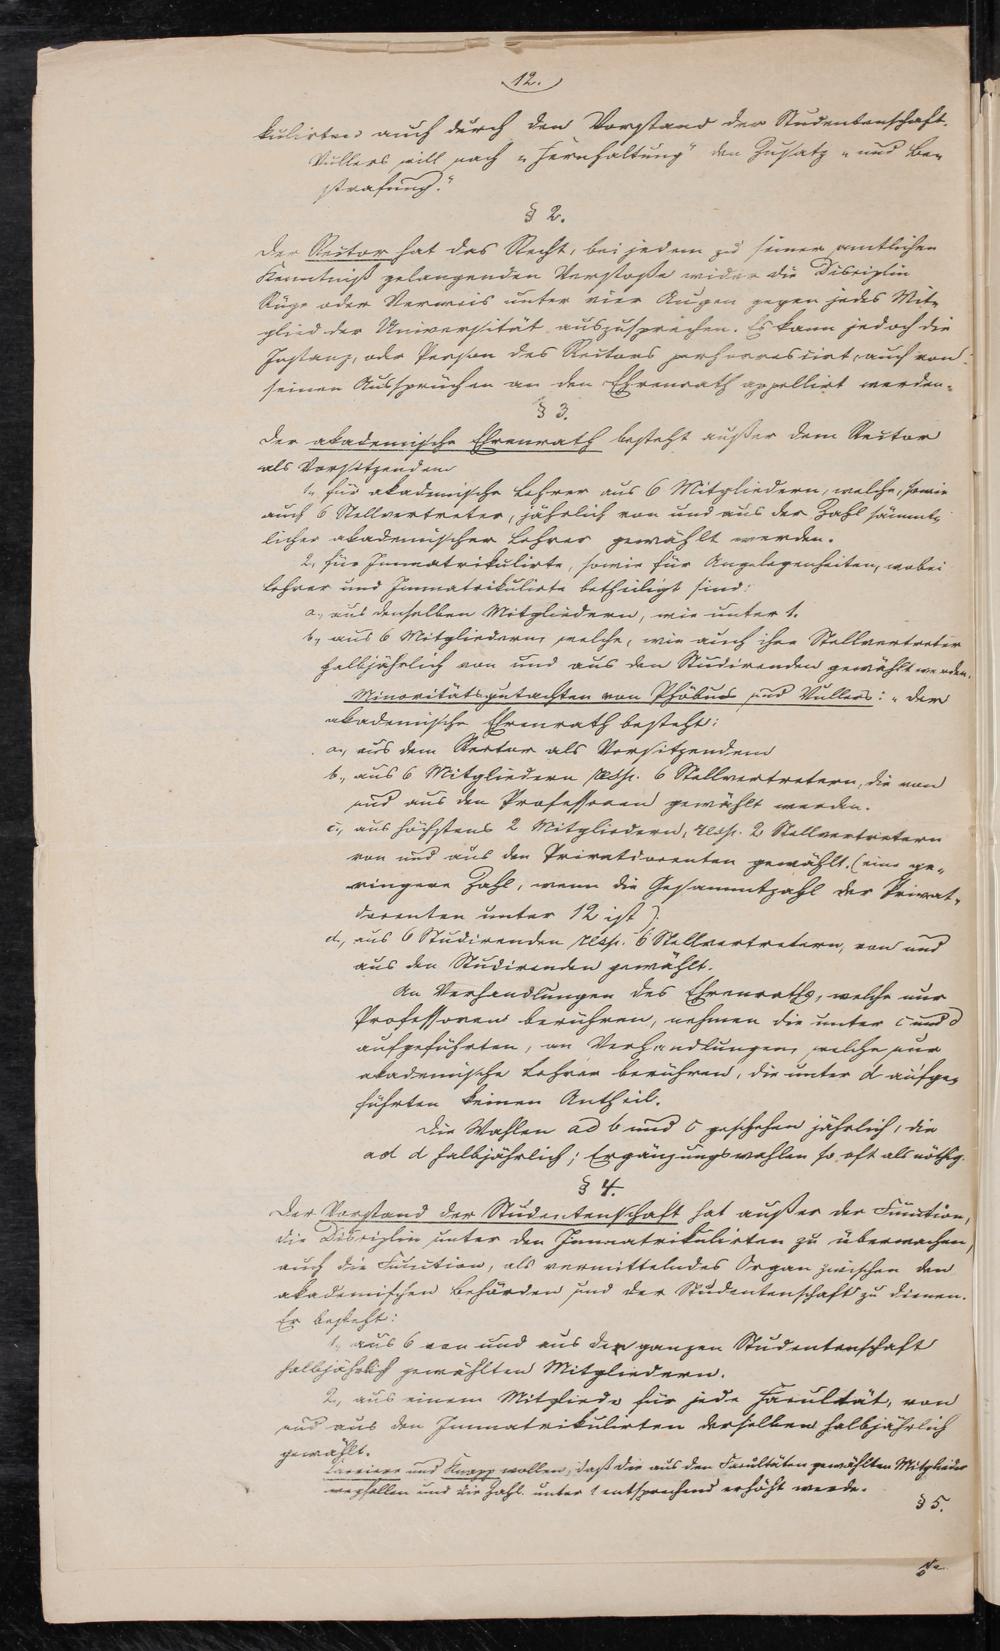 12.
kulirten auch durch den Vorstand der Studentenschaft.
Vullers will nach „Fernhaltung" den Zusatz „und Be-
strafung."
§ 2.
Der Rector hat das Recht, bei jedem zu seiner amtlichen
Kenntniß gelangenden Verstoße wider die Disciplin
Rüge oder Verweis unter vier Augen gegen jedes Mit-
glied der Universität auszusprechen. Es kann jedoch die
Instanz, oder Person des Rectors perhorrescirt, auch von
seinen Aussprüchen an den Ehrenrath appellirt werden.
§ 3.
Der akademische Ehrenrath besteht außer dem Rector
als Vorsitzendem
1, für akademische Lehrer aus 6 Mitgliedern, welche, sowie
auch 6 Stellvertreter, jährlich von und aus der Zahl sämmt-
licher akademischer Lehrer gewählt werden.
2, für Immatrikulirte, sowie für Angelegenheiten, wobei
Lehrer und Immatrikulirte betheiligt sind:
a, aus denselben Mitgliedern, wie unter 1.
b, aus 6 Mitgliedern, welche, wie auch ihre Stellvertreter
halbjährlich von und aus den Studirenden gewählt werden.
Minoritätsgutachten von Phöbus und Vullers: „Der
akademische Ehrenrath besteht:
a, aus dem Rector als Vorsitzendem
b, aus 6 Mitgliedern resp. 6 Stellvertretern, die von
und aus den Professoren gewählt werden.
c, aus höchstens 2 Mitgliedern, resp. 2 Stellvertretern
von und aus den Privatdocenten gewählt. (eine ge-
ringere Zahl, wenn die Gesammtzahl der Privat-
docenten unter 12 ist).
d, aus 6 Studirenden resp. 6 Stellvertretern, von und
aus den Studirenden gewählt.
An Verhandlungen des Ehrenraths, welche nur
Professoren berühren, nehmen die unter c und d
aufgeführten, an Verhandlungen, welche nur
akademische Lehrer berühren, die unter d aufge-
führten keinen Antheil.
Die Wahlen ad b und c geschehen jährlich, die
ad d halbjährlich; Ergänzungswahlen so oft als nöthig.
§ 4.
Der Vorstand der Studentenschaft hat außer der Function,
die Disciplin unter den Immatrikulirten zu überwachen,
auch die Function, als vermittelndes Organ zwischen den
akademischen Behörden und der Studentenschaft zu dienen.
Er besteht:
1, aus 6 von und aus der ganzen Studentenschaft
halbjährlich gewählten Mitgliedern.
2, aus einem Mitgliede für jede Facultät, von
und aus den Immatrikulirten derselben halbjährlich
gewählt.
Carriere und Knapp wollen, daß die aus den Facultäten gewählten Mitglieder
wegfallen und die Zahl unter 1 entsprechend erhöht werde.
§ 5.